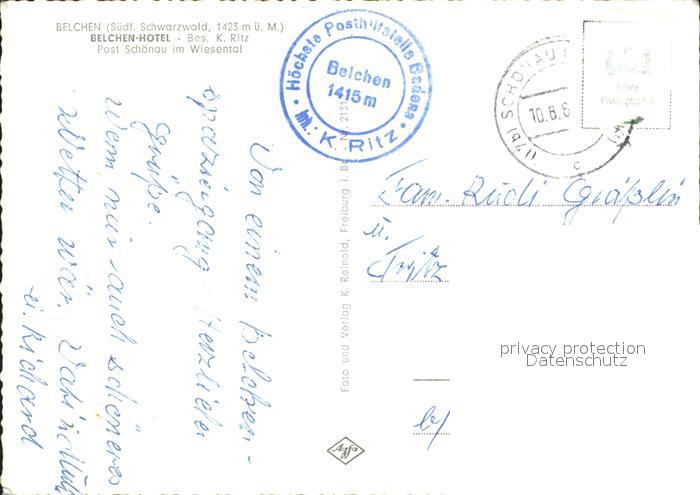 BELCHEN (Südl. Schwarzwald, 1423 m ü. M.)
BELCHEN-HOTEL - Bes. K. Ritz
Post Schönau im Wiesental
Höchste Posthilfstelle Badens
Belchen
1415 m
Inh.: K. Ritz
(17b) SCHÖNAU
10.8.6
c
Echte
Photographie
Von einem Belchen-
spaziergang herzliche
Grüße.
Wenn nur auch schöneres
Wetter wär.
u. Richard
Foto und Verlag K. Reinold, Freiburg i. Br.
Fam. Rudi Gräßlin
u.
Fritz
b/
privacy protection
Datenschutz
Agfa